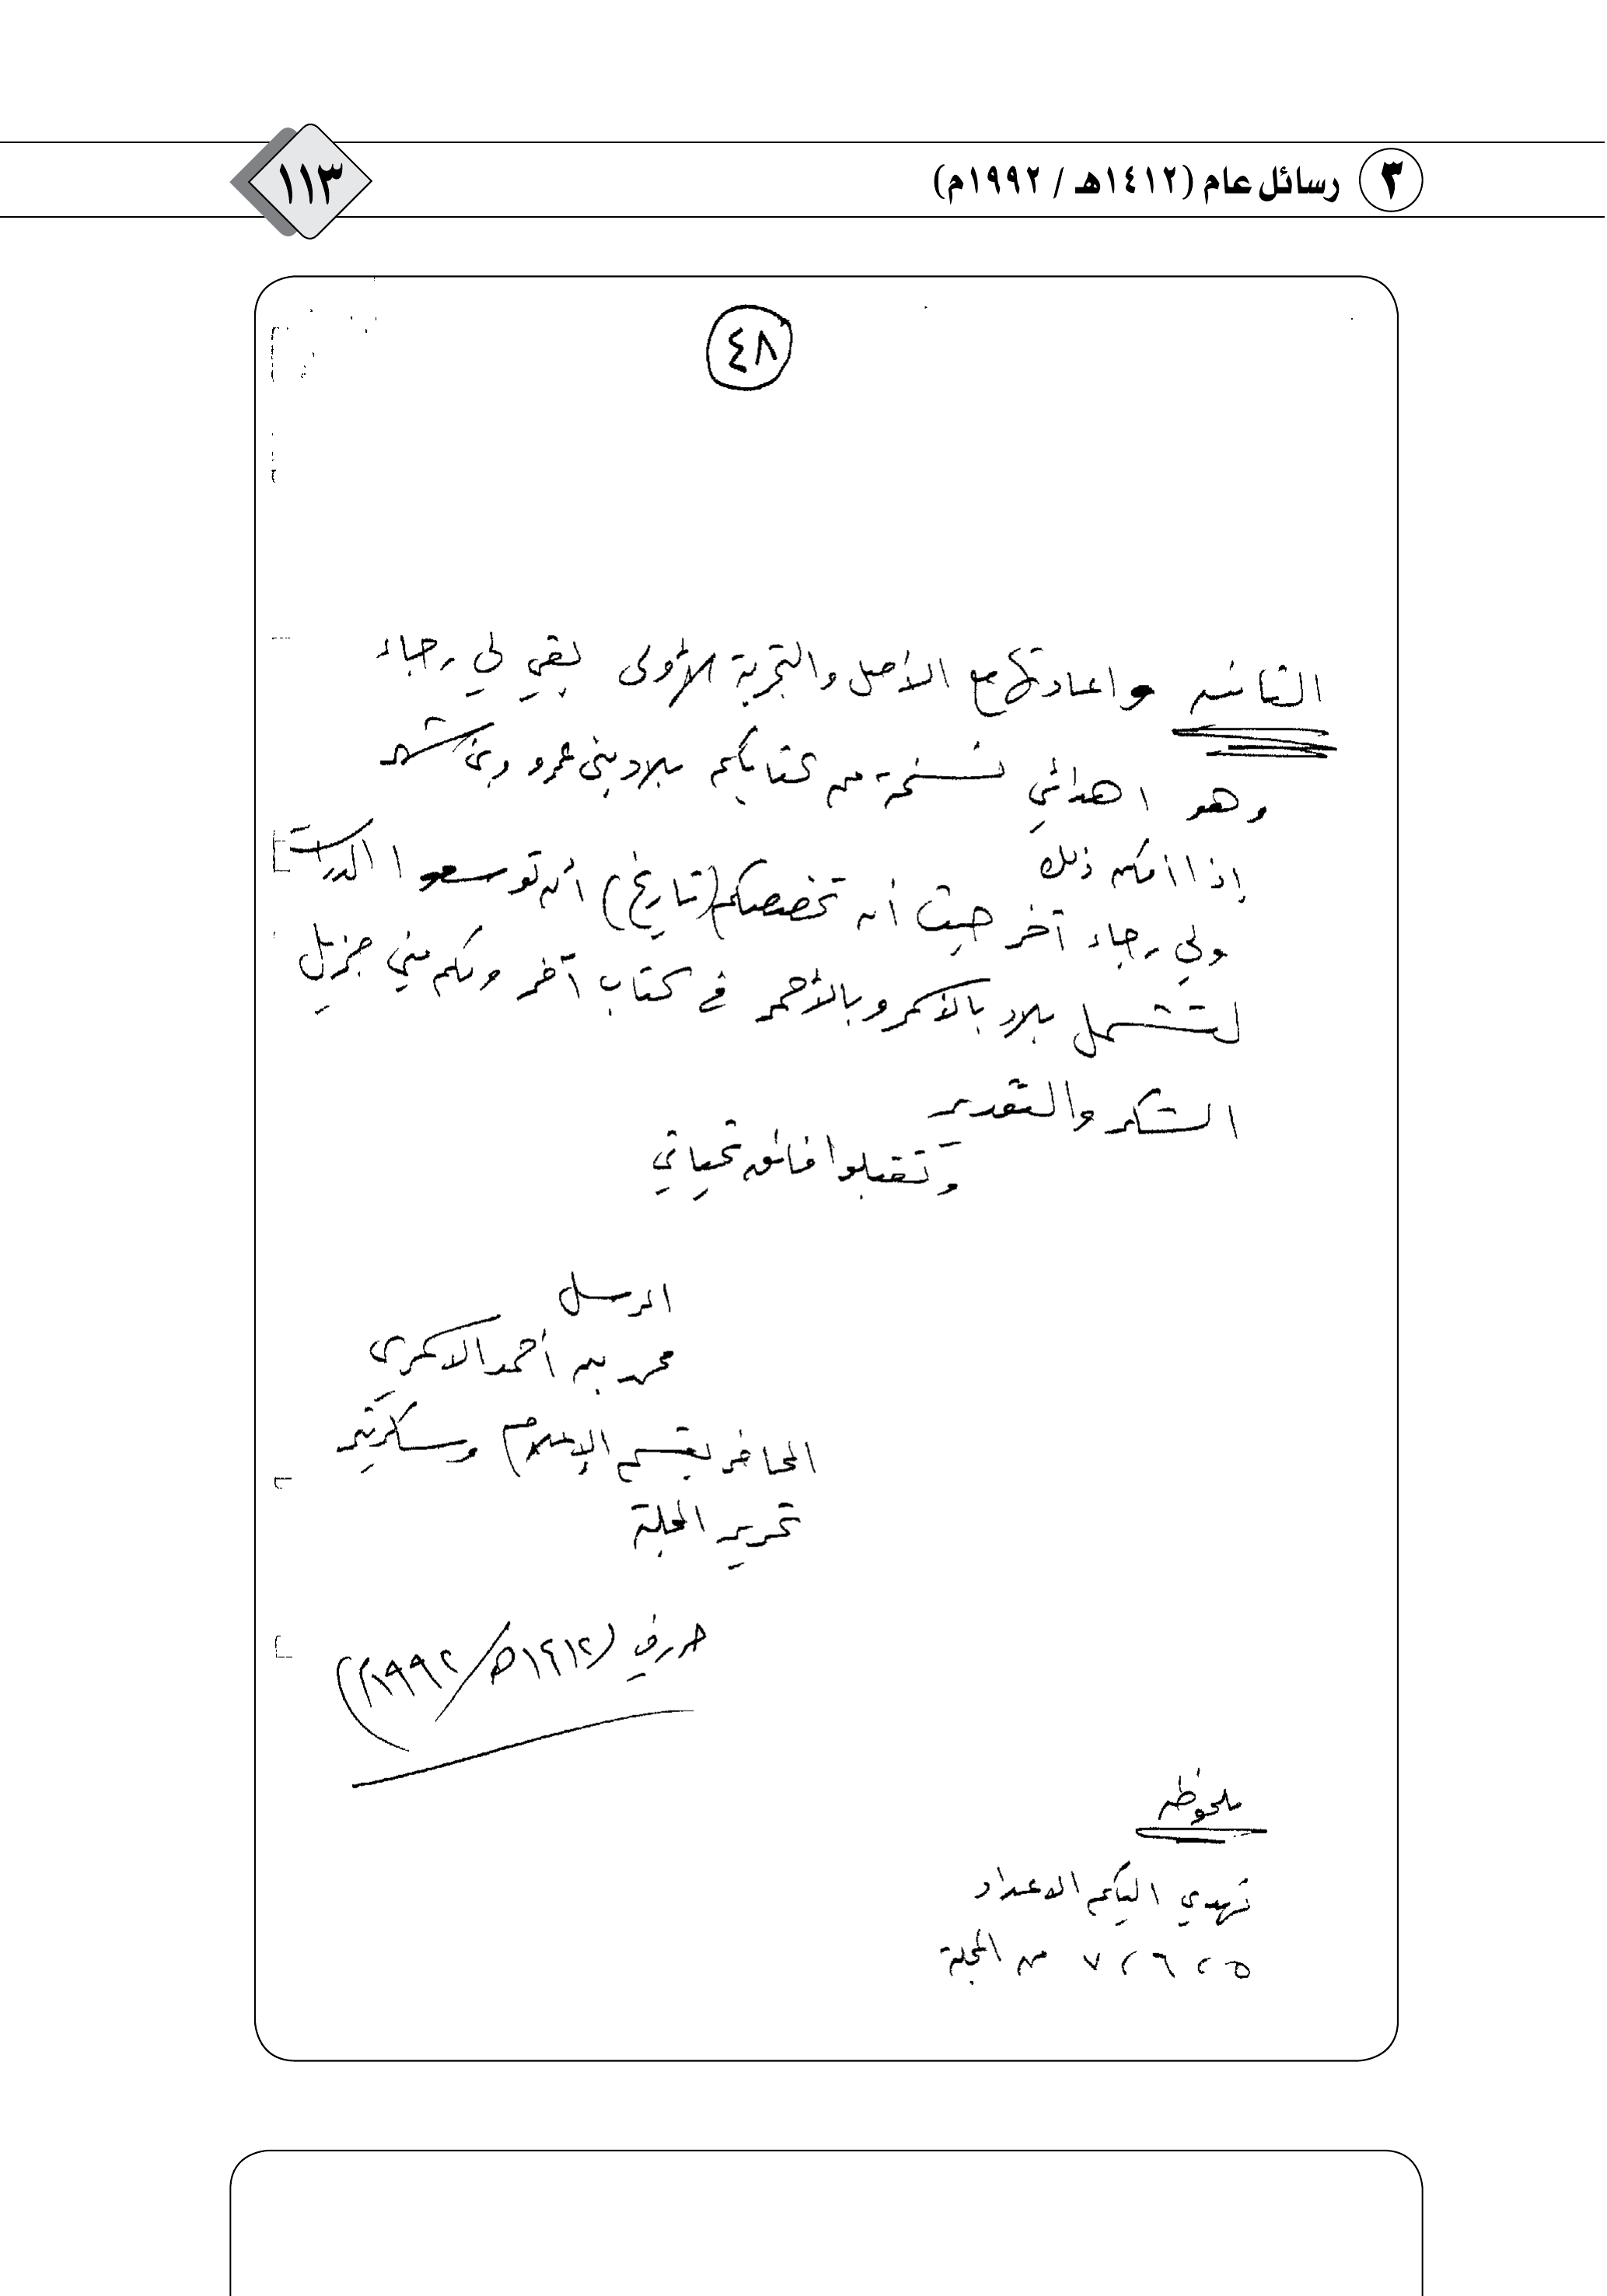 ٣ رسائل عام (١٤١٢هـ / ١٩٩٢م)
١١٣
٤٨
الثانيه واعادتها مع الأصل والتجربة الأولى بقي لي رجاء
وهو اهدائي نسخة من كتابكم بلاد بني عمرو وبني شهر
إذا أمكن ذلك
ولي رجاء آخر حيث أن تخصصكم (تاريخ) أن توسعوا الدراسة
لتشمل بلاد بالأسمر وبالأحمر في كتاب آخر ولكم مني جزيل
الشكر والتقدير
وتقبلوا فائق تحياتي
المرسل
محمد بن أحمد الاسمري
المحاضر بقسم الإعلام وسكرتير
تحرير المجلة
حرر في (١٤١٢ه/١٩٩٢م)
ملحوظه
نهدي اليكم الاعداد
٥ ، ٦ ، ٧ من المجلة